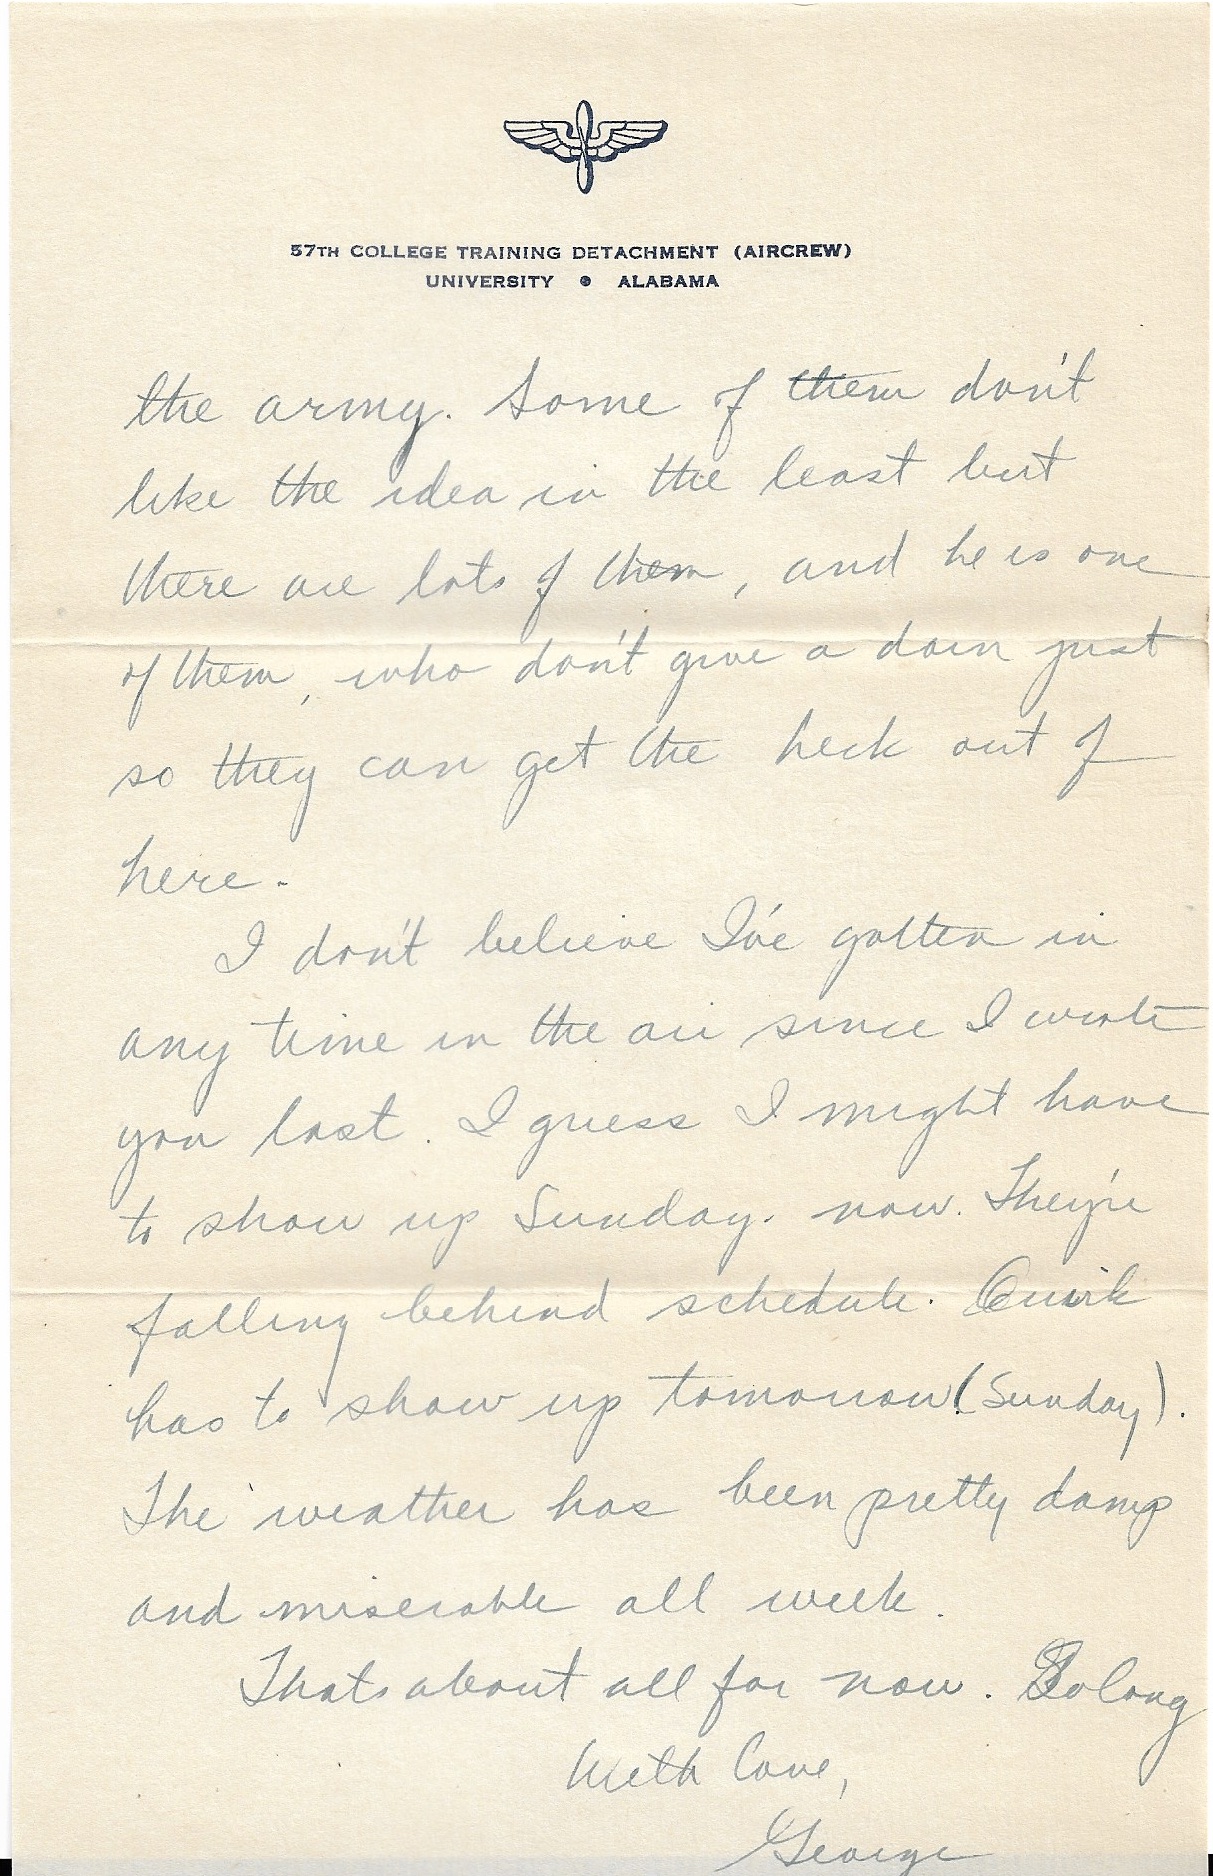 57TH COLLEGE TRAINING DETACHMENT (AIRCREW)
UNIVERSITY • ALABAMA
the army. Some of them don't
like the idea in the least but
there are lots of them, and he is one
of them, who don't give a darn just
so they can get the heck out of
here.
I don't believe I've gotten in
any time in the air since I wrote
you last. I guess I might have
to show up Sunday. now. They're
falling behind schedule. Quirk
has to show up tomorrow (Sunday).
The weather has been pretty damp
and miserable all week.
Thats about all for now. So long
With Love,
George